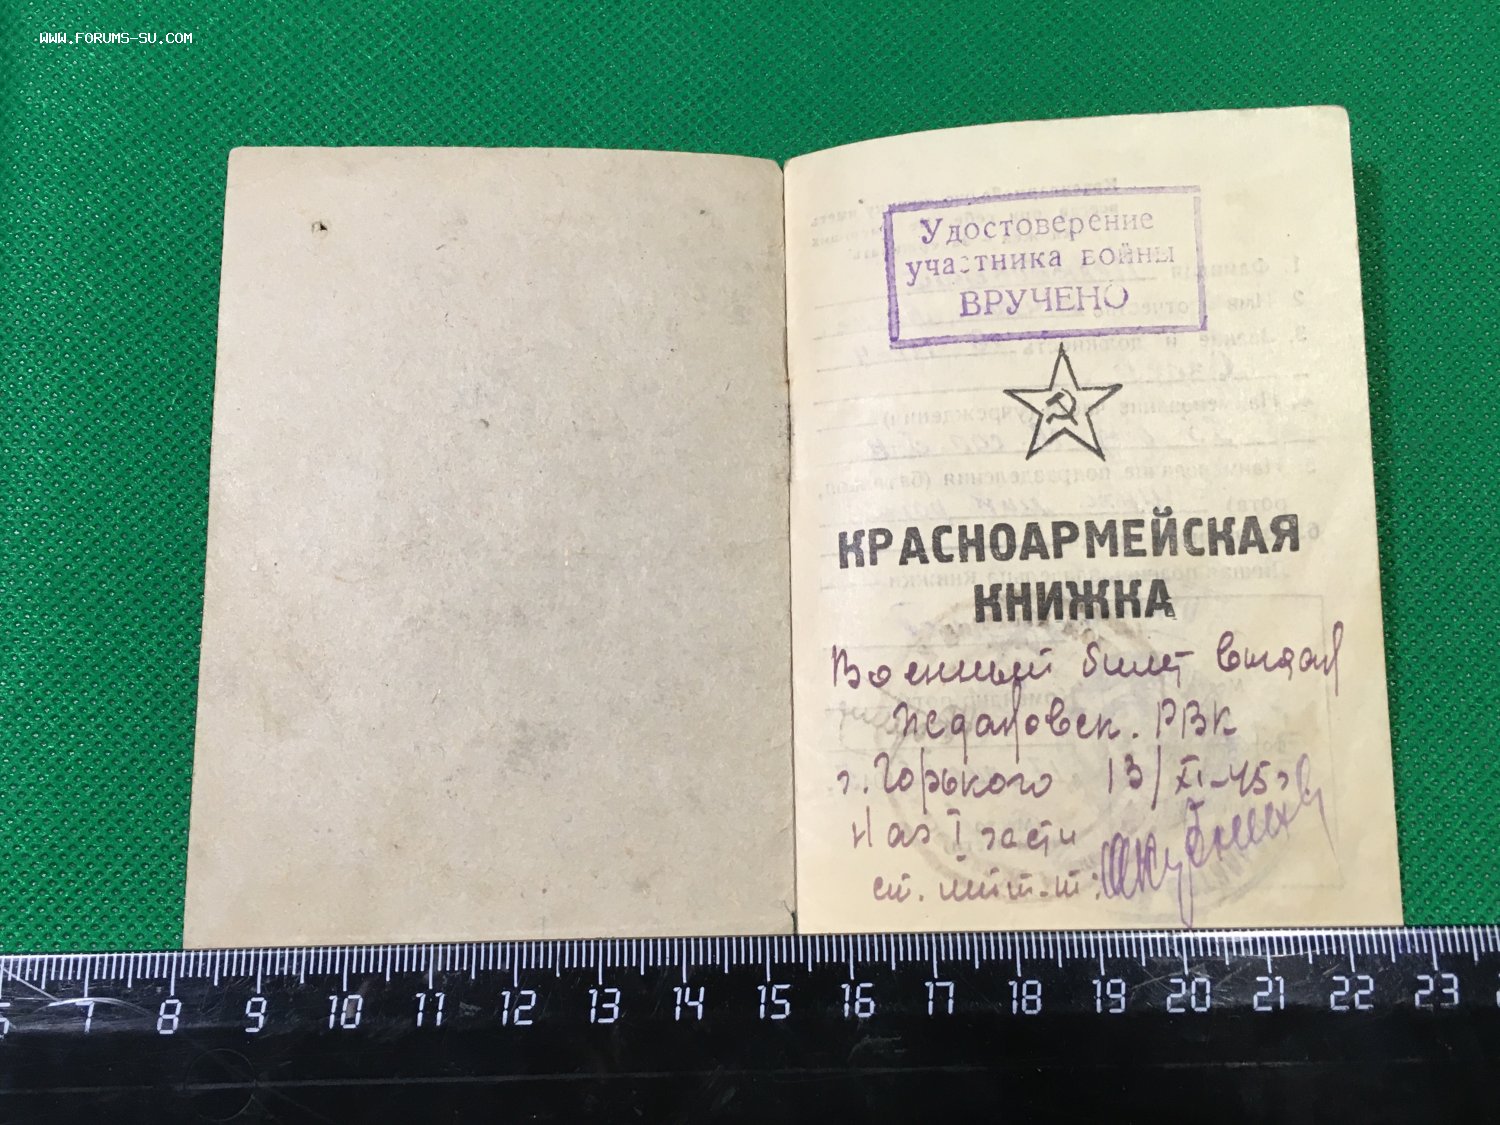 WWW.FORUMS-SU.COM
Удостоверение
участника войны
ВРУЧЕНО
КРАСНОАРМЕЙСКАЯ
КНИЖКА
Военный билет выдан
Ждановск. РВК
г. Горького 13/XI-45г
Нач I части
ст. лейт-т:
6 7 8 9 10 11 12 13 14 15 16 17 18 19 20 21 22 23